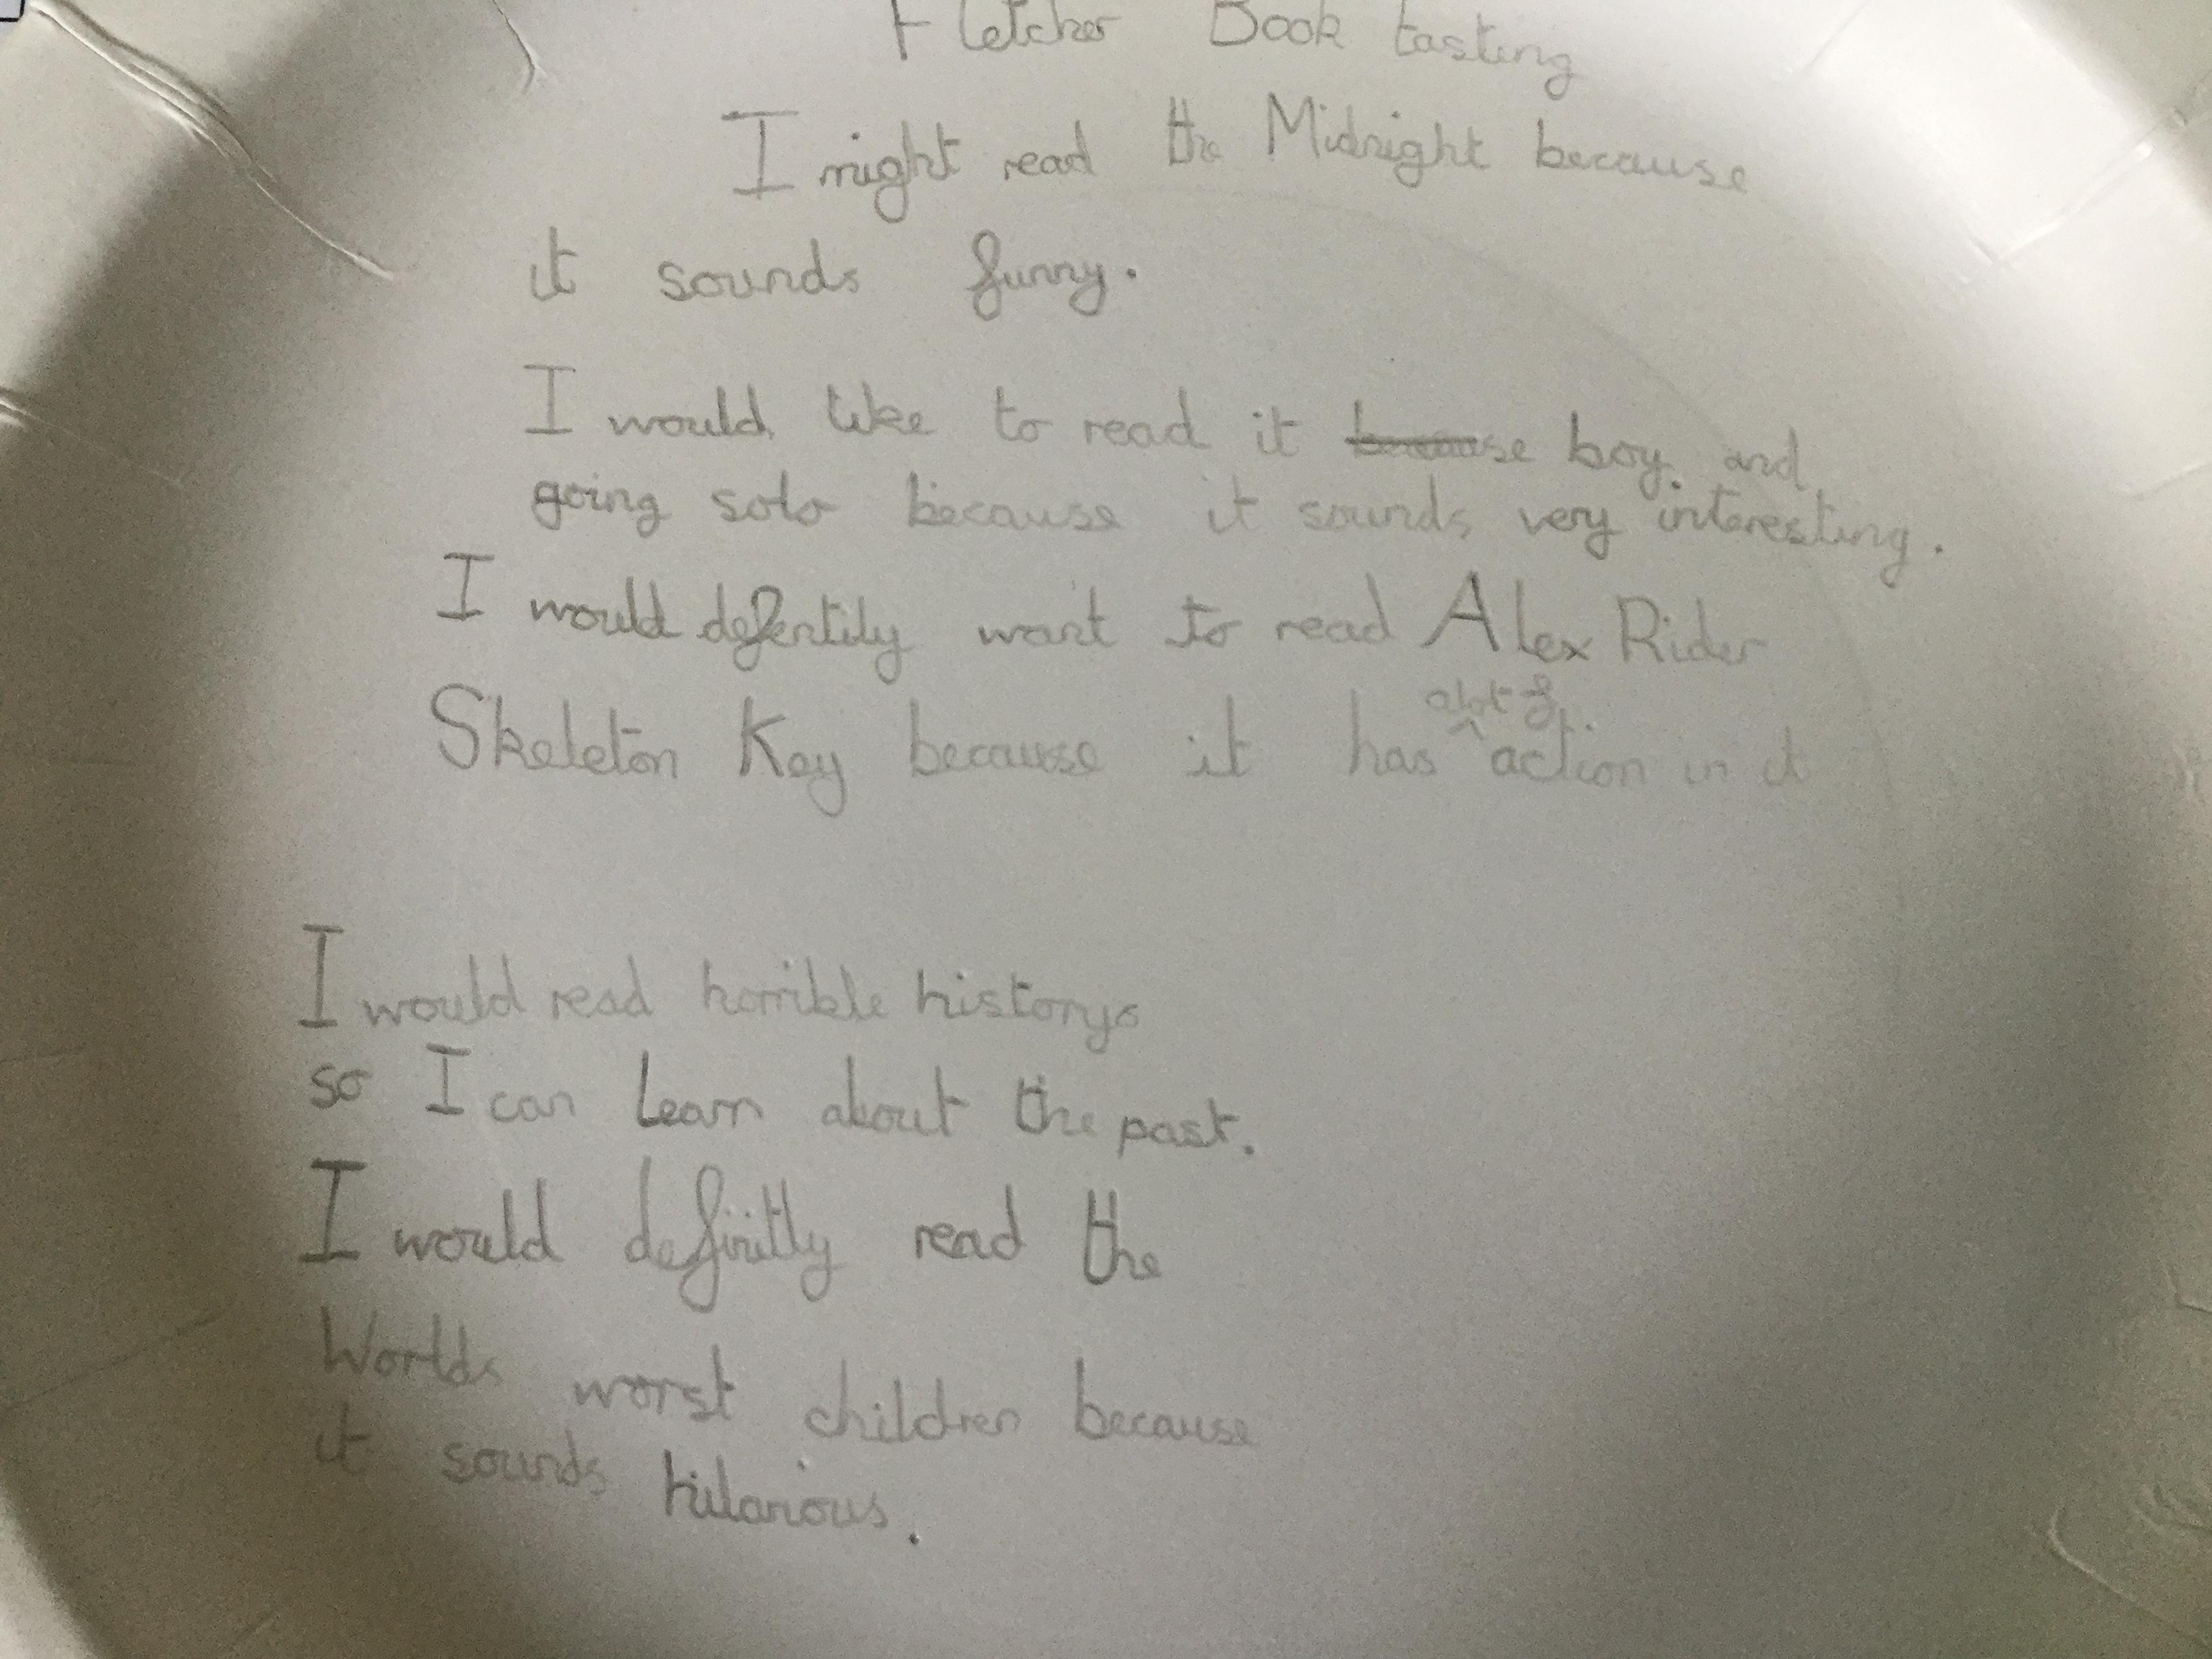 Fletcher Book tasting
I might read the Midnight because
it sounds funny.
I would like to read it because boy and
going solo because it sounds very interesting.
I would defentily want to read Alex Rider
Skeleton Key because it has alot of action in it
I would read horrible historys
so I can learn about the past.
I would definitly read the
Worlds worst children because
it sounds hilarious.